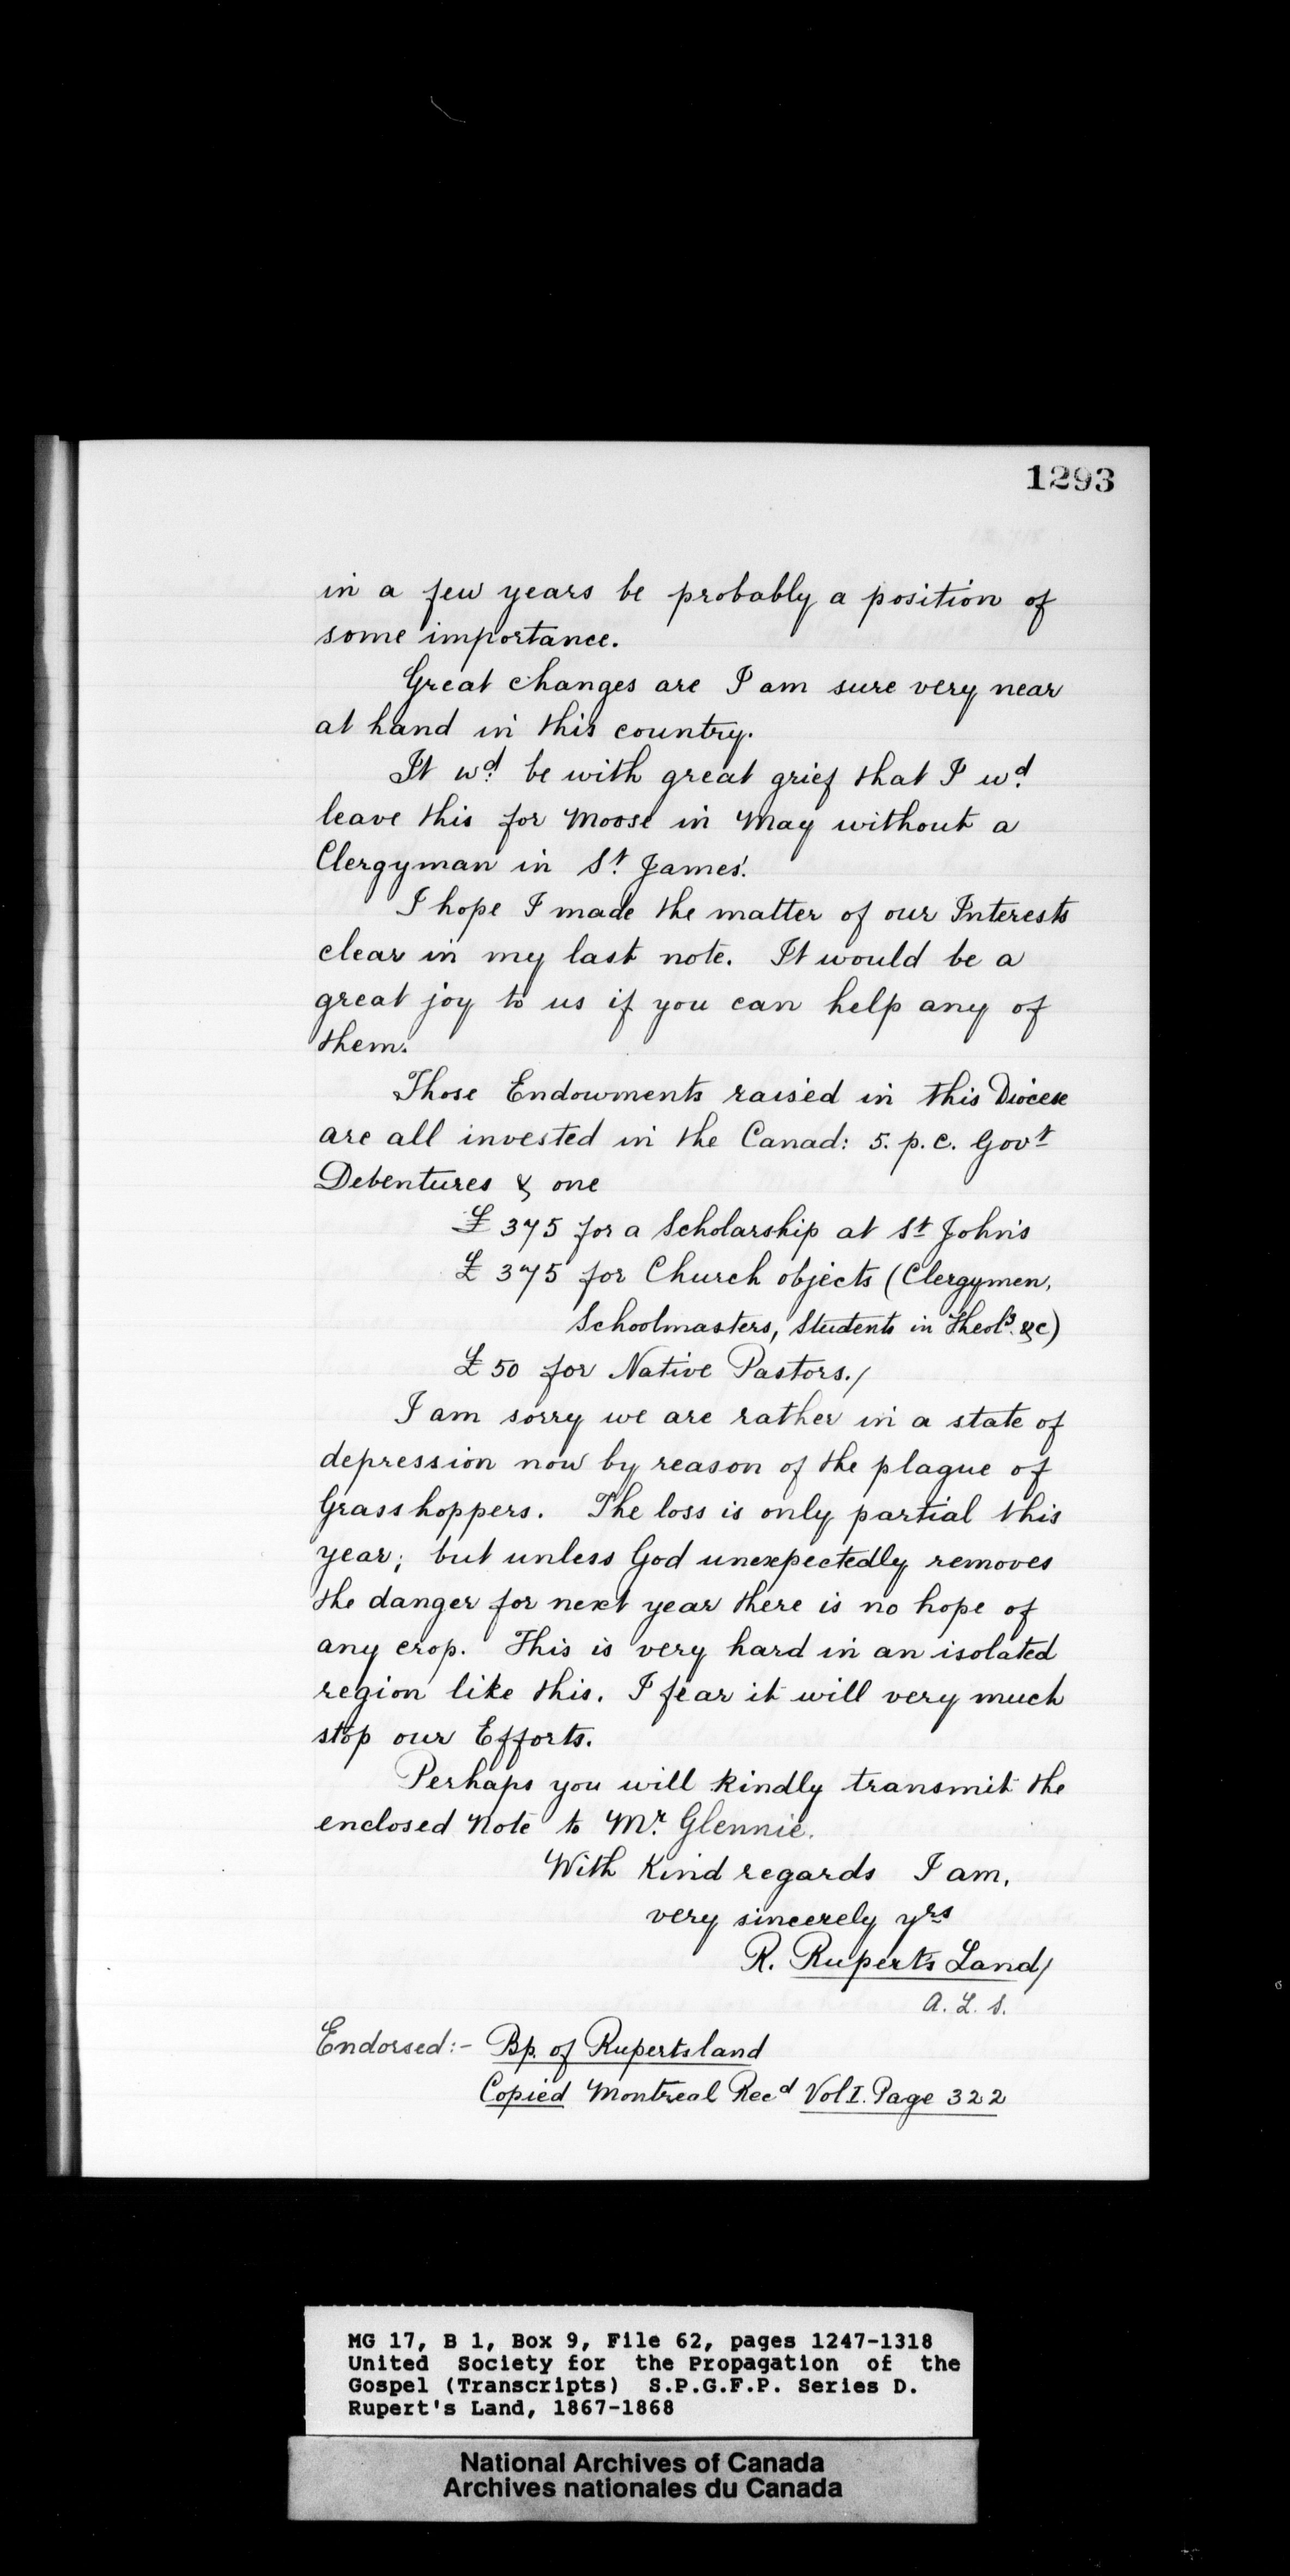 1293
in a few years be probably a position of
some importance.
Great changes are I am sure very near
at hand in this country.
It wd. be with great grief that I wd.
leave this for Moose in May without a
Clergyman in St. James'.
I hope I made the matter of our Interests
clear in my last note. It would be a
great joy to us if you can help any of
them.
Those Endowments raised in this Diocese
are all invested in the Canad: 5. p. c. Govt
Debentures & one
£ 375 for a Scholarship at St John's
£ 375 for Church objects (Clergymen,
Schoolmasters, Students in Theoly. &c)
£ 50 for Native Pastors./
I am sorry we are rather in a state of
depression now by reason of the plague of
Grasshoppers. The loss is only partial this
year; but unless God unexpectedly removes
the danger for next year there is no hope of
any crop. This is very hard in an isolated
region like this. I fear it will very much
stop our Efforts.
Perhaps you will kindly transmit the
enclosed Note to Mr. Glennie.
With Kind regards I am,
very sincerely yrs
R. Ruperts Land/
A. L. S.
Endorsed:- Bp. of Rupertsland
Copied Montreal Recd Vol I. Page 322
MG 17, B 1, Box 9, File 62, pages 1247-1318
United Society for the Propagation of the
Gospel (Transcripts) S.P.G.F.P. Series D.
Rupert's Land, 1867-1868
National Archives of Canada
Archives nationales du Canada